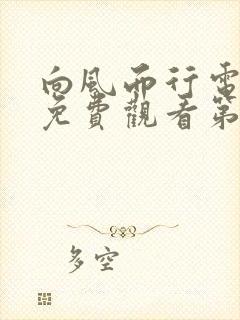 向风而行電
免費觀看第
多空